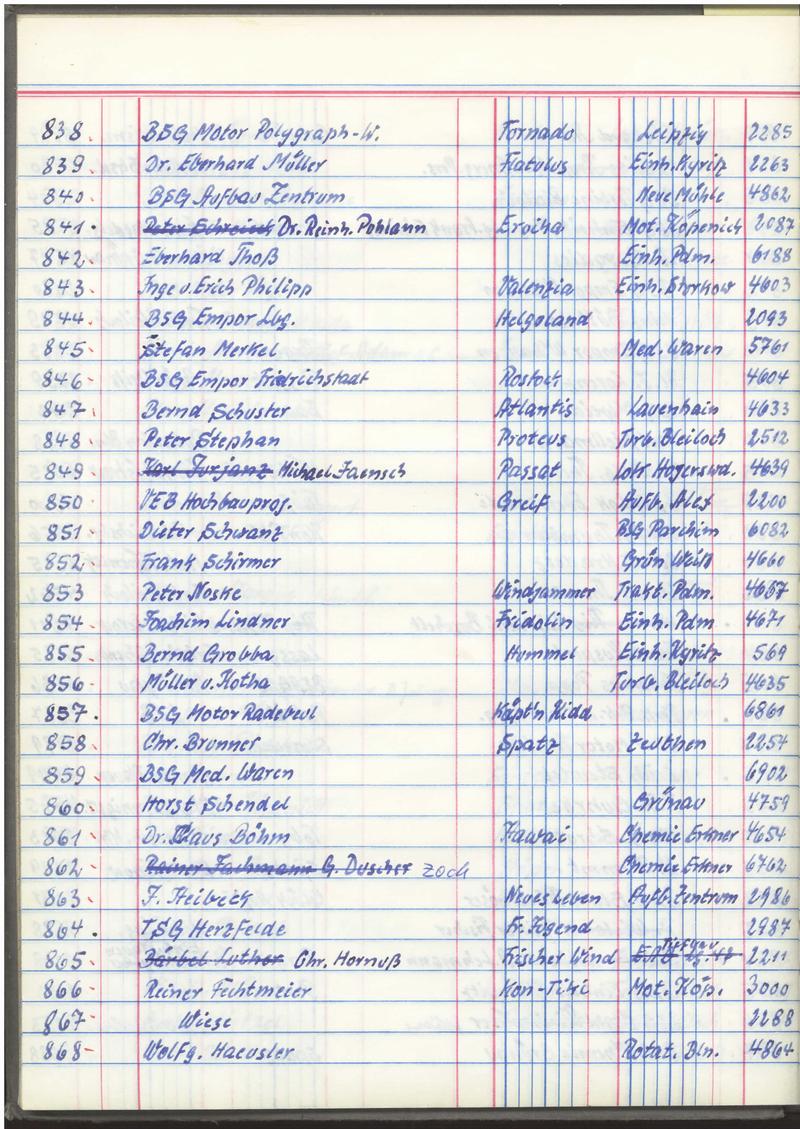 838. BSG Motor Polygraph-W. Tornado Leipzig 2285
839. Dr. Eberhard Müller Einh. Kyritz 2263
840. BSG Aufbau Zentrum Neue Mühle 4862
841. Peter Dr. Reinh. Pohlann Mot. Köpenick 2087
842. Eberhard Thoß Einh. Pdm. 6188
843. Inge u. Erich Philipp Valenzia Einh. Storkow 4603
844. BSG Empor Lbg. Helgoland 2093
845. Stefan Merkel Med. Waren 5761
846. BSG Empor Fridrichstadt Rostock 4604
847. Bernd Schuster Atlantis Lauenhain 4633
848. Peter Stephan Proteus Turb. Bleiloch 2512
849. Karl Michael Jaensch Passat Lok Hoyerswd. 4639
850. VEB Hochbauproj. Greif Aufb. Alex 2200
851. Dieter Schwanz BSG Parchim 6082
852. Frank Schirmer Grün Weiß 4660
853 Peter Noske Windjammer Trakt. Pdm.
854. Joachim Lindner Fridolin Einh. Pdm 4671
855. Bernd Grobba Hummel Einh. Kyritz 569
856. Müller u. Kotha Turb. Bleiloch 4635
857. BSG Motor Radebeul Käpt'n Kidd 6861
858. Chr. Brunner Spatz Zeuthen 2254
859 BSG Med. Waren 6902
860. Horst Schendel Grünau 4759
861. Dr. Klaus Böhm Hawai Chemie Erkner 4654
862. Rainer Fachmann G. Duscher Zoch Chemie Erkner 6762
863. F. Heibeck Neues Leben Aufb. Zentrum 2986
864. TSG Herzfelde Fr. Jugend 2987
865. Bärbel Luther Chr. Hornuß Frischer Wind 2211
866. Reiner Fechtmeier Kon-Tiki Mot. Köp. 3000
867 Wiese 2288
868 Wolfg. Haeusler Rotat. Bln. 4864